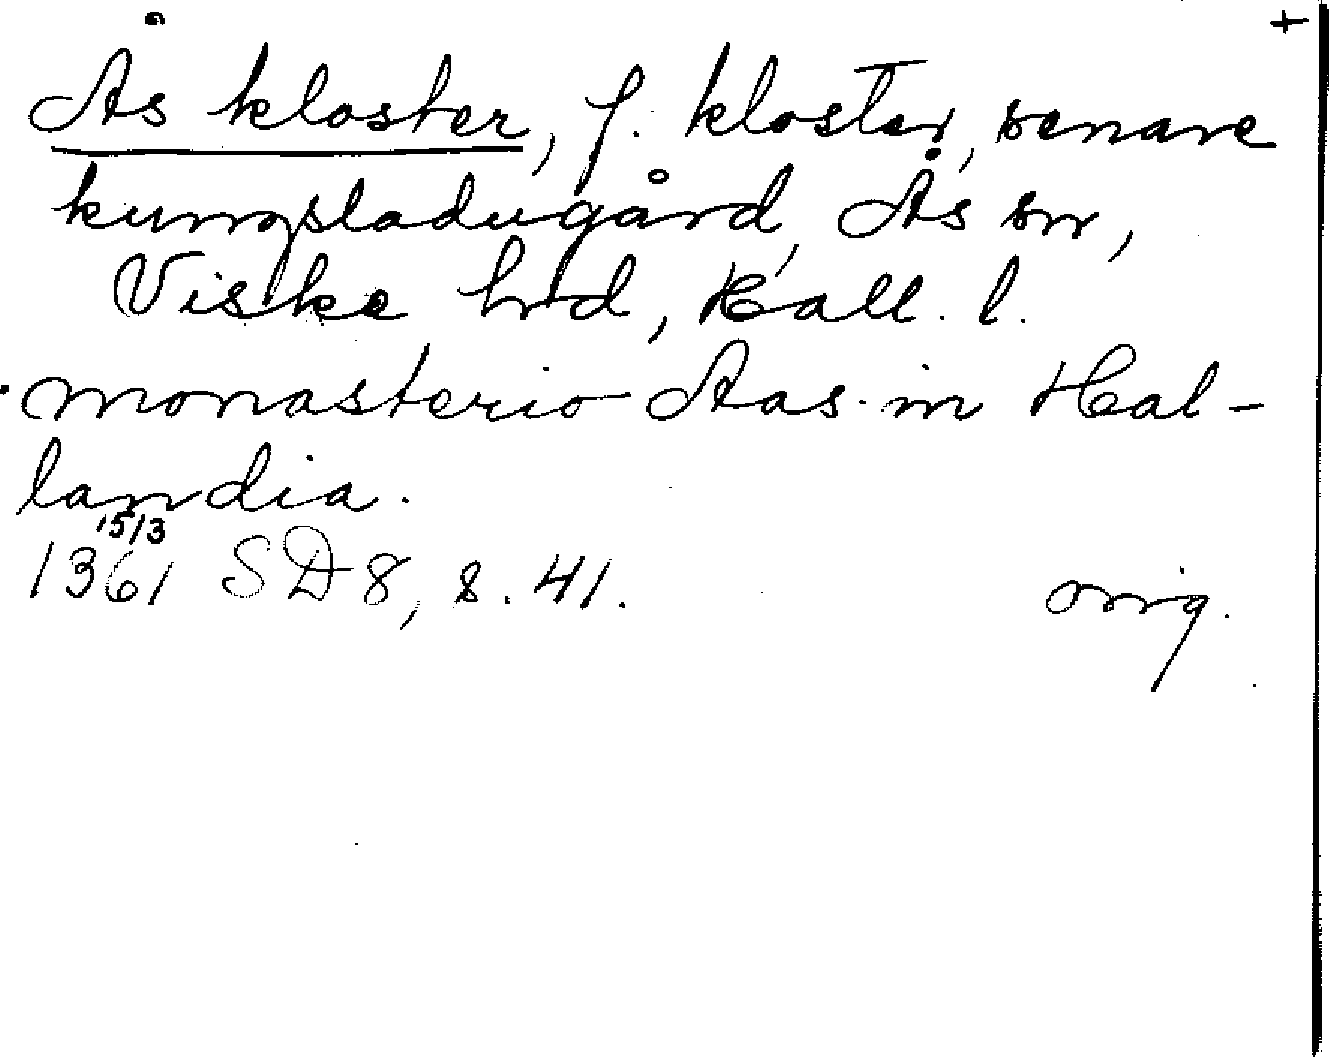 +
Ås kloster, f. kloster, senare
kungsladugård, Ås sn,
Viske hrd, Hall. l.
monasterio Aas in Hal-
landia.
15/3
1361 SD 8, s. 41. orig.